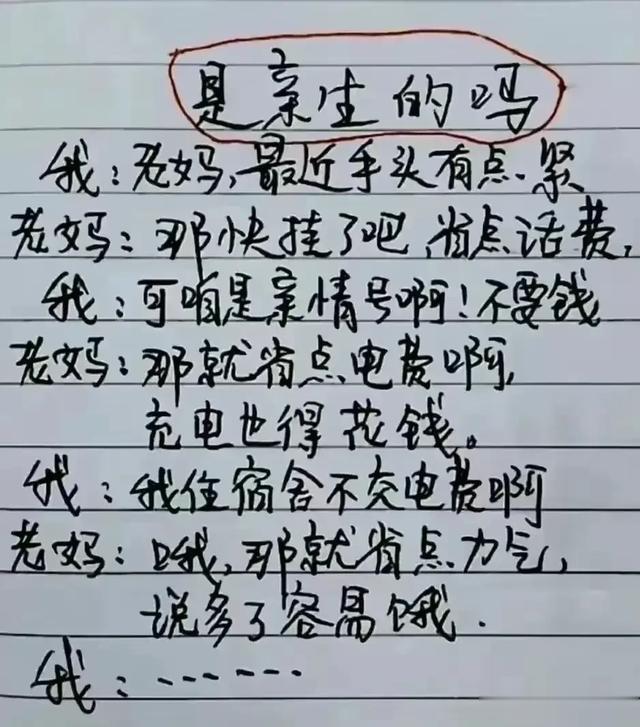 是亲生的吗
我：老妈，最近手头有点紧
老妈：那快挂了吧，省点话费，
我：可咱是亲情号啊！不要钱
老妈：那就省点电费啊，
充电也得花钱。
我：我住宿舍不交电费啊
老妈：哦，那就省点力气，
说多了容易饿．
我：……